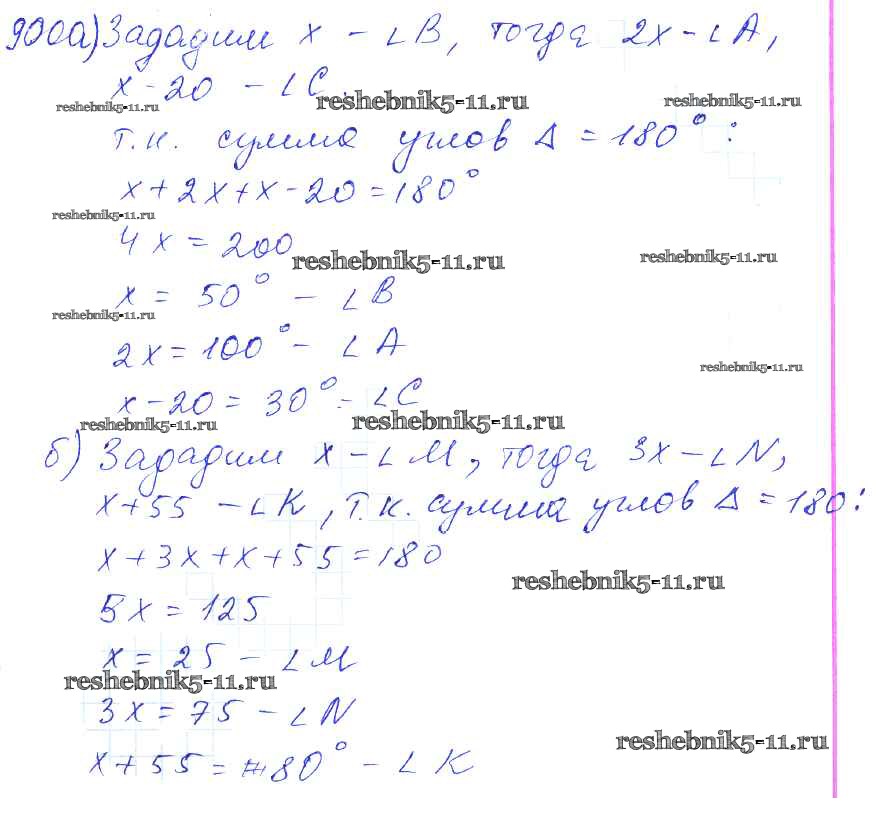 900а) Зададим x - ∠B, тогда 2x - ∠A,
x - 20 - ∠C.
reshebnik5-11.ru reshebnik5-11.ru reshebnik5-11.ru
т.к. сумма углов Δ = 180° :
x + 2x + x - 20 = 180°
reshebnik5-11.ru
4x = 200
reshebnik5-11.ru reshebnik5-11.ru
x = 50° - ∠B
reshebnik5-11.ru
2x = 100° - ∠A
reshebnik5-11.ru
x - 20 = 30° - ∠C
reshebnik5-11.ru reshebnik5-11.ru
б) Зададим x - ∠M, тогда 3x - ∠N,
x + 55 - ∠K, т.к. сумма углов Δ = 180:
x + 3x + x + 55 = 180
reshebnik5-11.ru
5x = 125
x = 25 - ∠M
reshebnik5-11.ru
3x = 75 - ∠N
reshebnik5-11.ru
x + 55 = 80° - ∠K